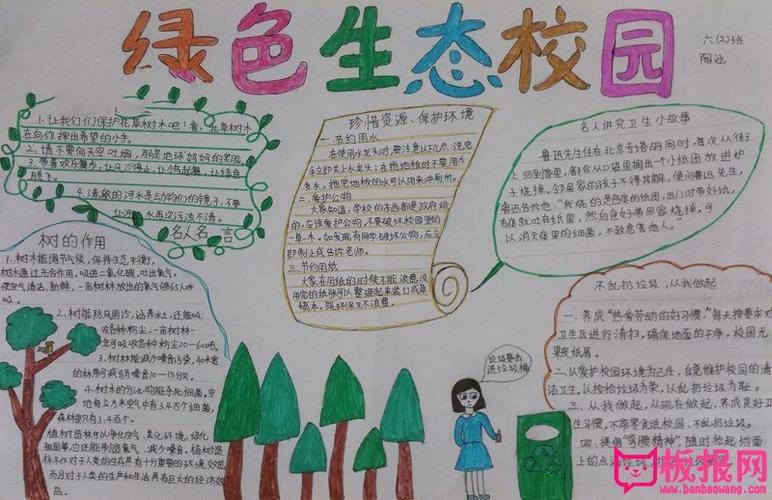 绿色生态校园
六(2)班
1.让我们们保护花草树木吧!看,花草树木
在向你挥出希望的小手。
2.请不要向天空吐烟,那是地球妈妈的笑脸。
让小鸟起舞,让绿色
4.清澈的河水是动物们的镜子,不要
让河水再次污浊不清。
名人名言
珍惜资源、保护环境
一.节约用水
在使用水龙头时,要注意以下几点:洗完
手立即关上水龙头;在拖地板时不要用太
多水,拖完地板的水可以用来冲厕所。
二.爱护公物
大家知道,学校的东西都是政府给
的,应该爱护公物,不要破坏校园里的
一草一木。如发现有同学破坏公物,应立
即制止或告诉老师。
三.节约用纸
大家在用纸的时候不能浪费,没
用完的纸张可以整理起来装订成草
稿本,既环保又不浪费。
名人讲究卫生小故事
鲁迅先生住在北京寺塔胡同时,每次从街
上回到院里,都会从口袋里掏出个小纸团放进炉
子烧掉,邻居家的孩子不得其解,便问鲁迅先生,
鲁迅告诉他:“我烧的是包痰的纸团,出门时带好纸,
有痰就吐在纸里,然后包好带回家烧掉,可
以消灭痰里的细菌,不致危害他人。”
树的作用
1.树木能调节气候,保持生态平衡,
树木通过光合作用,吸进二氧化碳,吐出氧气,
使空气清洁、新鲜,一亩树林放出的氧气够65人呼
吸。
2.树能防风固沙,涵养水土,还能吸
收各种粉尘,一亩树林一
年可吸收各种粉尘20—60吨。
3.树林能减少噪音污染,40米宽
的林带可减弱噪音10—15分贝。
4.树木的分泌物能杀死细菌。空
地每立方米空气中有3.4万个细菌,
森林里只有3.4百个。
植树造林可以净化空气、美化环境、绿化
祖国等,它还能制造氧气、减少噪音。植树造
林不仅对于人类的生存是有十分重要的环境效应,
而且对于人类的生产和生活具有巨大的经济效
益。
垃圾要丢
进垃圾桶
不乱扔垃圾,从我做起
一.养成“热爱劳动的好习惯”,每天按要求对
卫生区进行清扫,确保地面的干净,校园无
果皮纸屑。
二.以爱护校园环境为己任,自觉维护校园的清
洁卫生,以捡拾垃圾为荣,以乱扔垃圾为耻。
三.从我做起,从现在做起,养成良好卫
生习惯,不带零食进校园,不乱扔垃圾。
四.提倡“弯腰精神”,随时拾起地面
上的点滴垃圾
板报网
www.banbaowang.com